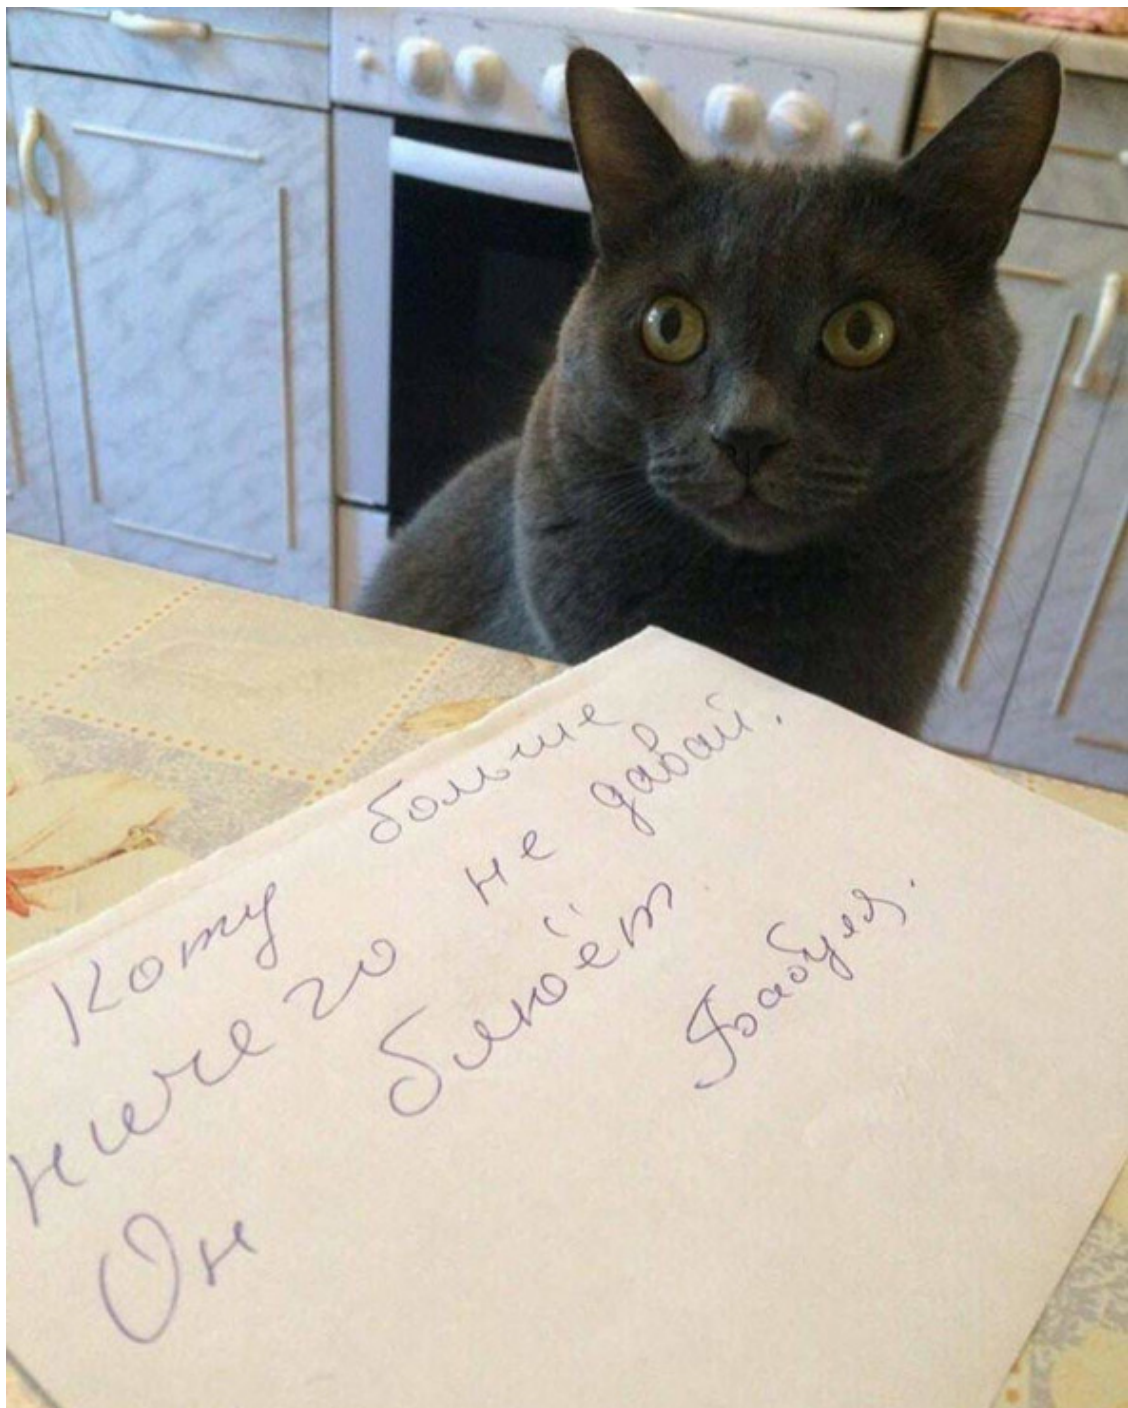 Коту больше
ничего не давай.
Он блюёт
Бабуля.